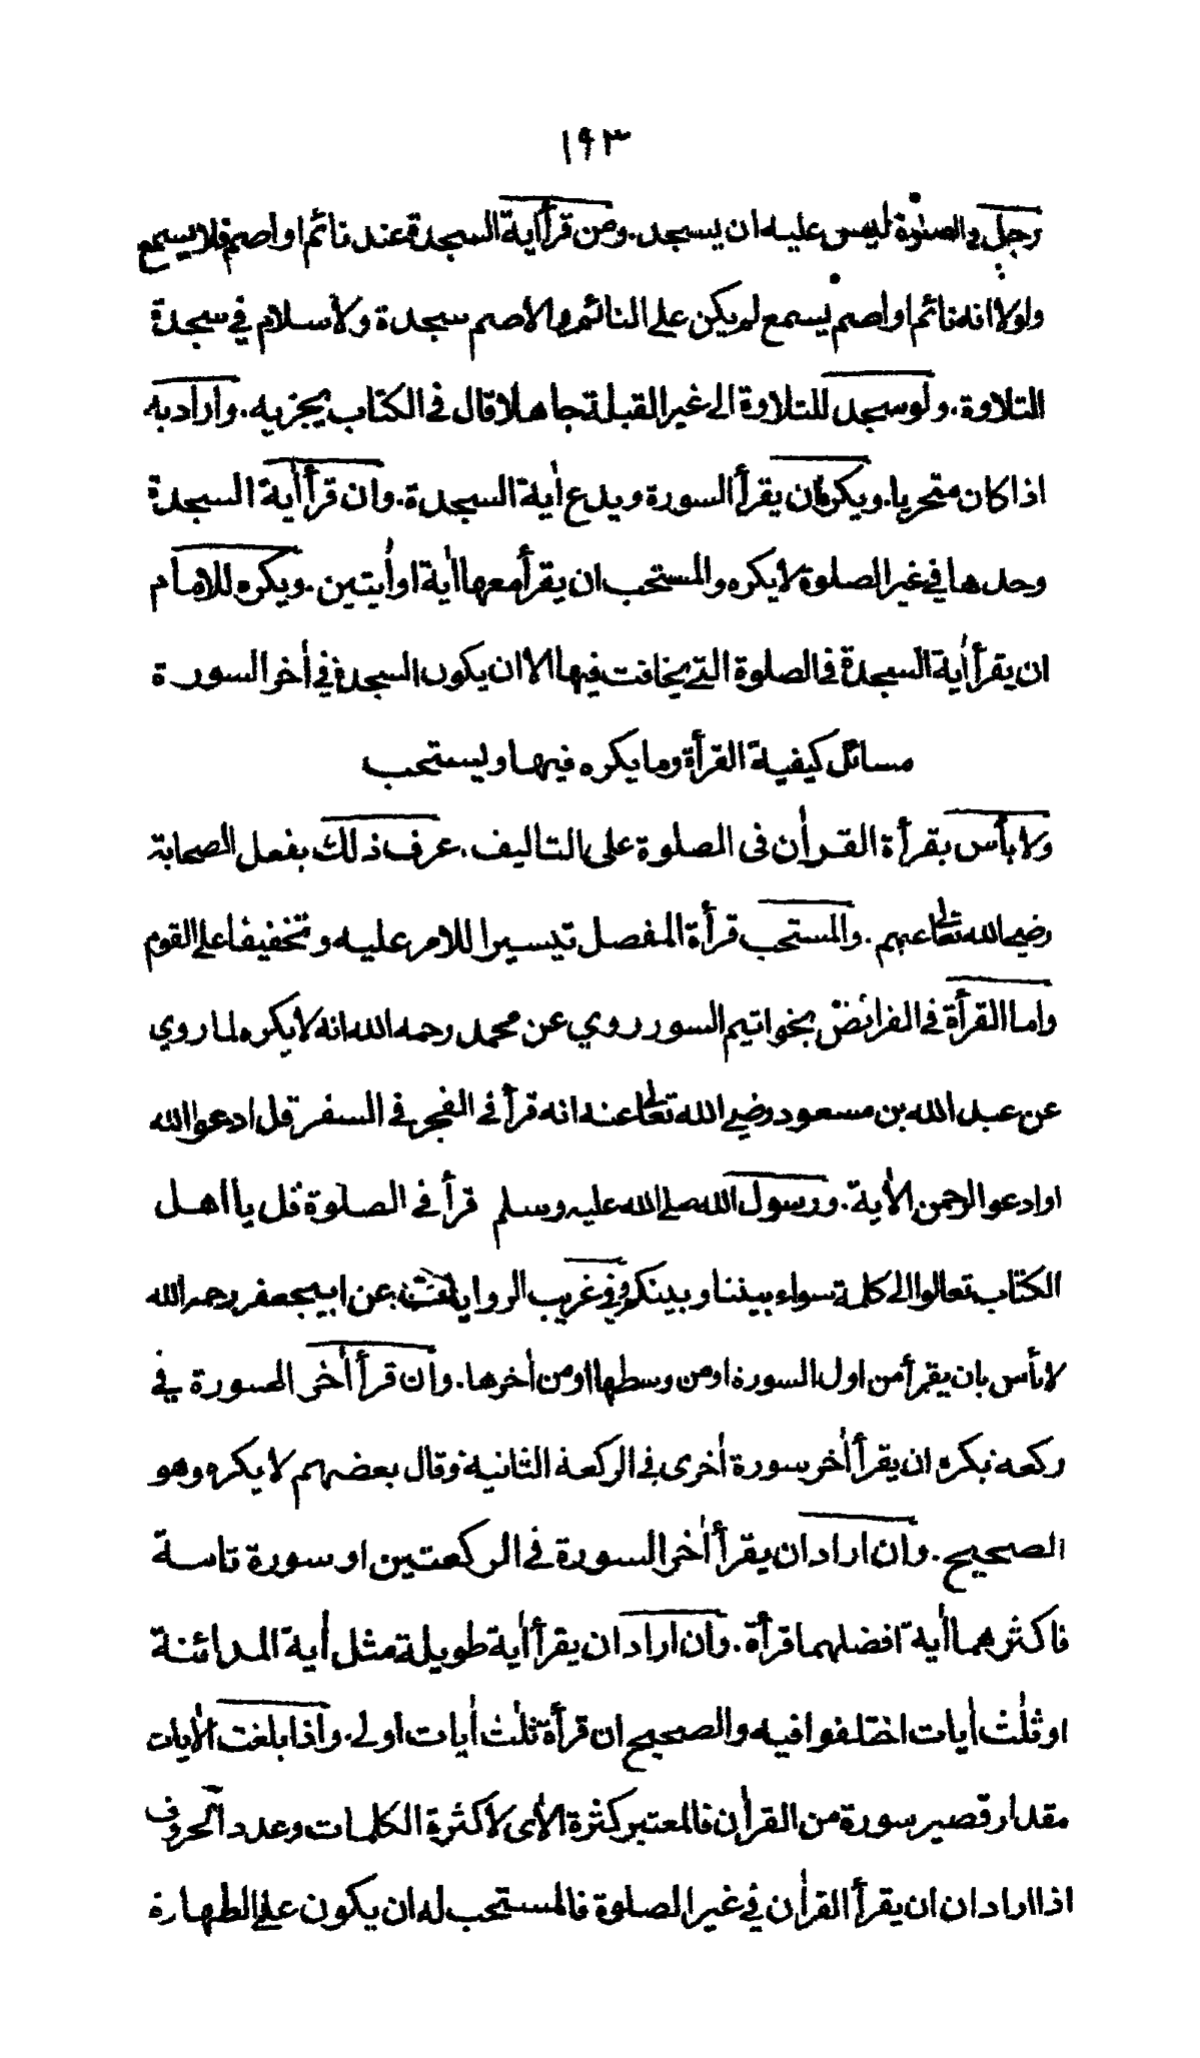 ١٩٣
رجل في الصلوة ليس عليه ان يسجد. ومن قرأ اٰية السجدة عند نائم او اصم فلا يسمع
ولولا انه نائم او اصم يسمع لم يكن على النائم والاصم سجدة ولا سلام في سجدة
التلاوة. ولو سجد للتلاوة الى غير القبلة جاهلا قال في الكتاب يجزيه. وأراد به
اذا كان متحريا. ويكره ان يقرأ السورة ويدع اٰية السجدة. وان قرأ اٰية السجدة
وحدها في غير الصلوة لا يكره والمستحب ان يقرأ معها اٰية او اٰيتين. ويكره للامام
ان يقرأ اٰية السجدة في الصلوة التي يخافت فيها الا ان يكون السجدة في اٰخر السورة
مسائل كيفية القرأة وما يكره فيها ويستحب
ولا بأس بقرأة القراٰن في الصلوة على التاليف. عرف ذلك بفعل الصحابة
رضي الله تعالى عنهم. والمستحب قرأة المفصل تيسيرا للامر عليه وتخفيفا على القوم
واما القرأة في الفرائض بخواتيم السور روي عن محمد رحمه الله انه لا يكره لما روي
عن عبد الله بن مسعود رضي الله تعالى عنه انه قرأ في الفجر في السفر قل ادعوا الله
او ادعوا الرحمن الاٰية. ورسول الله صلى الله عليه وسلم قرأ في الصلوة قل يا اهل
الكتاب تعالوا الى كلمة سواء بيننا وبينكم وفي غريب الروايات عن ابي جعفر رحمه الله
لا بأس بان يقرأ من اول السورة او من وسطها او من اٰخرها. وان قرأ اٰخر السورة في
ركعة يكره ان يقرأ اٰخر سورة أخرى في الركعة الثانية وقال بعضهم لا يكره وهو
الصحيح. وان اراد ان يقرأ اٰخر السورة في الركعتين او سورة تامة
فاكثرهما اٰية افضلهما قرأة. وان اراد ان يقرأ اٰية طويلة مثل اٰية المدائنة
او ثلٰث اٰيات اختلفوا فيه والصحيح ان قرأة ثلٰث اٰيات اولى. واذا بلغت الاٰيات
مقدار قصير سورة من القراٰن فالمعتبر كثرة الاٰى لا كثرة الكلمات وعدد الحروف
اذا اراد ان ان يقرأ القراٰن في غير الصلوة فالمستحب له ان يكون على الطهارة